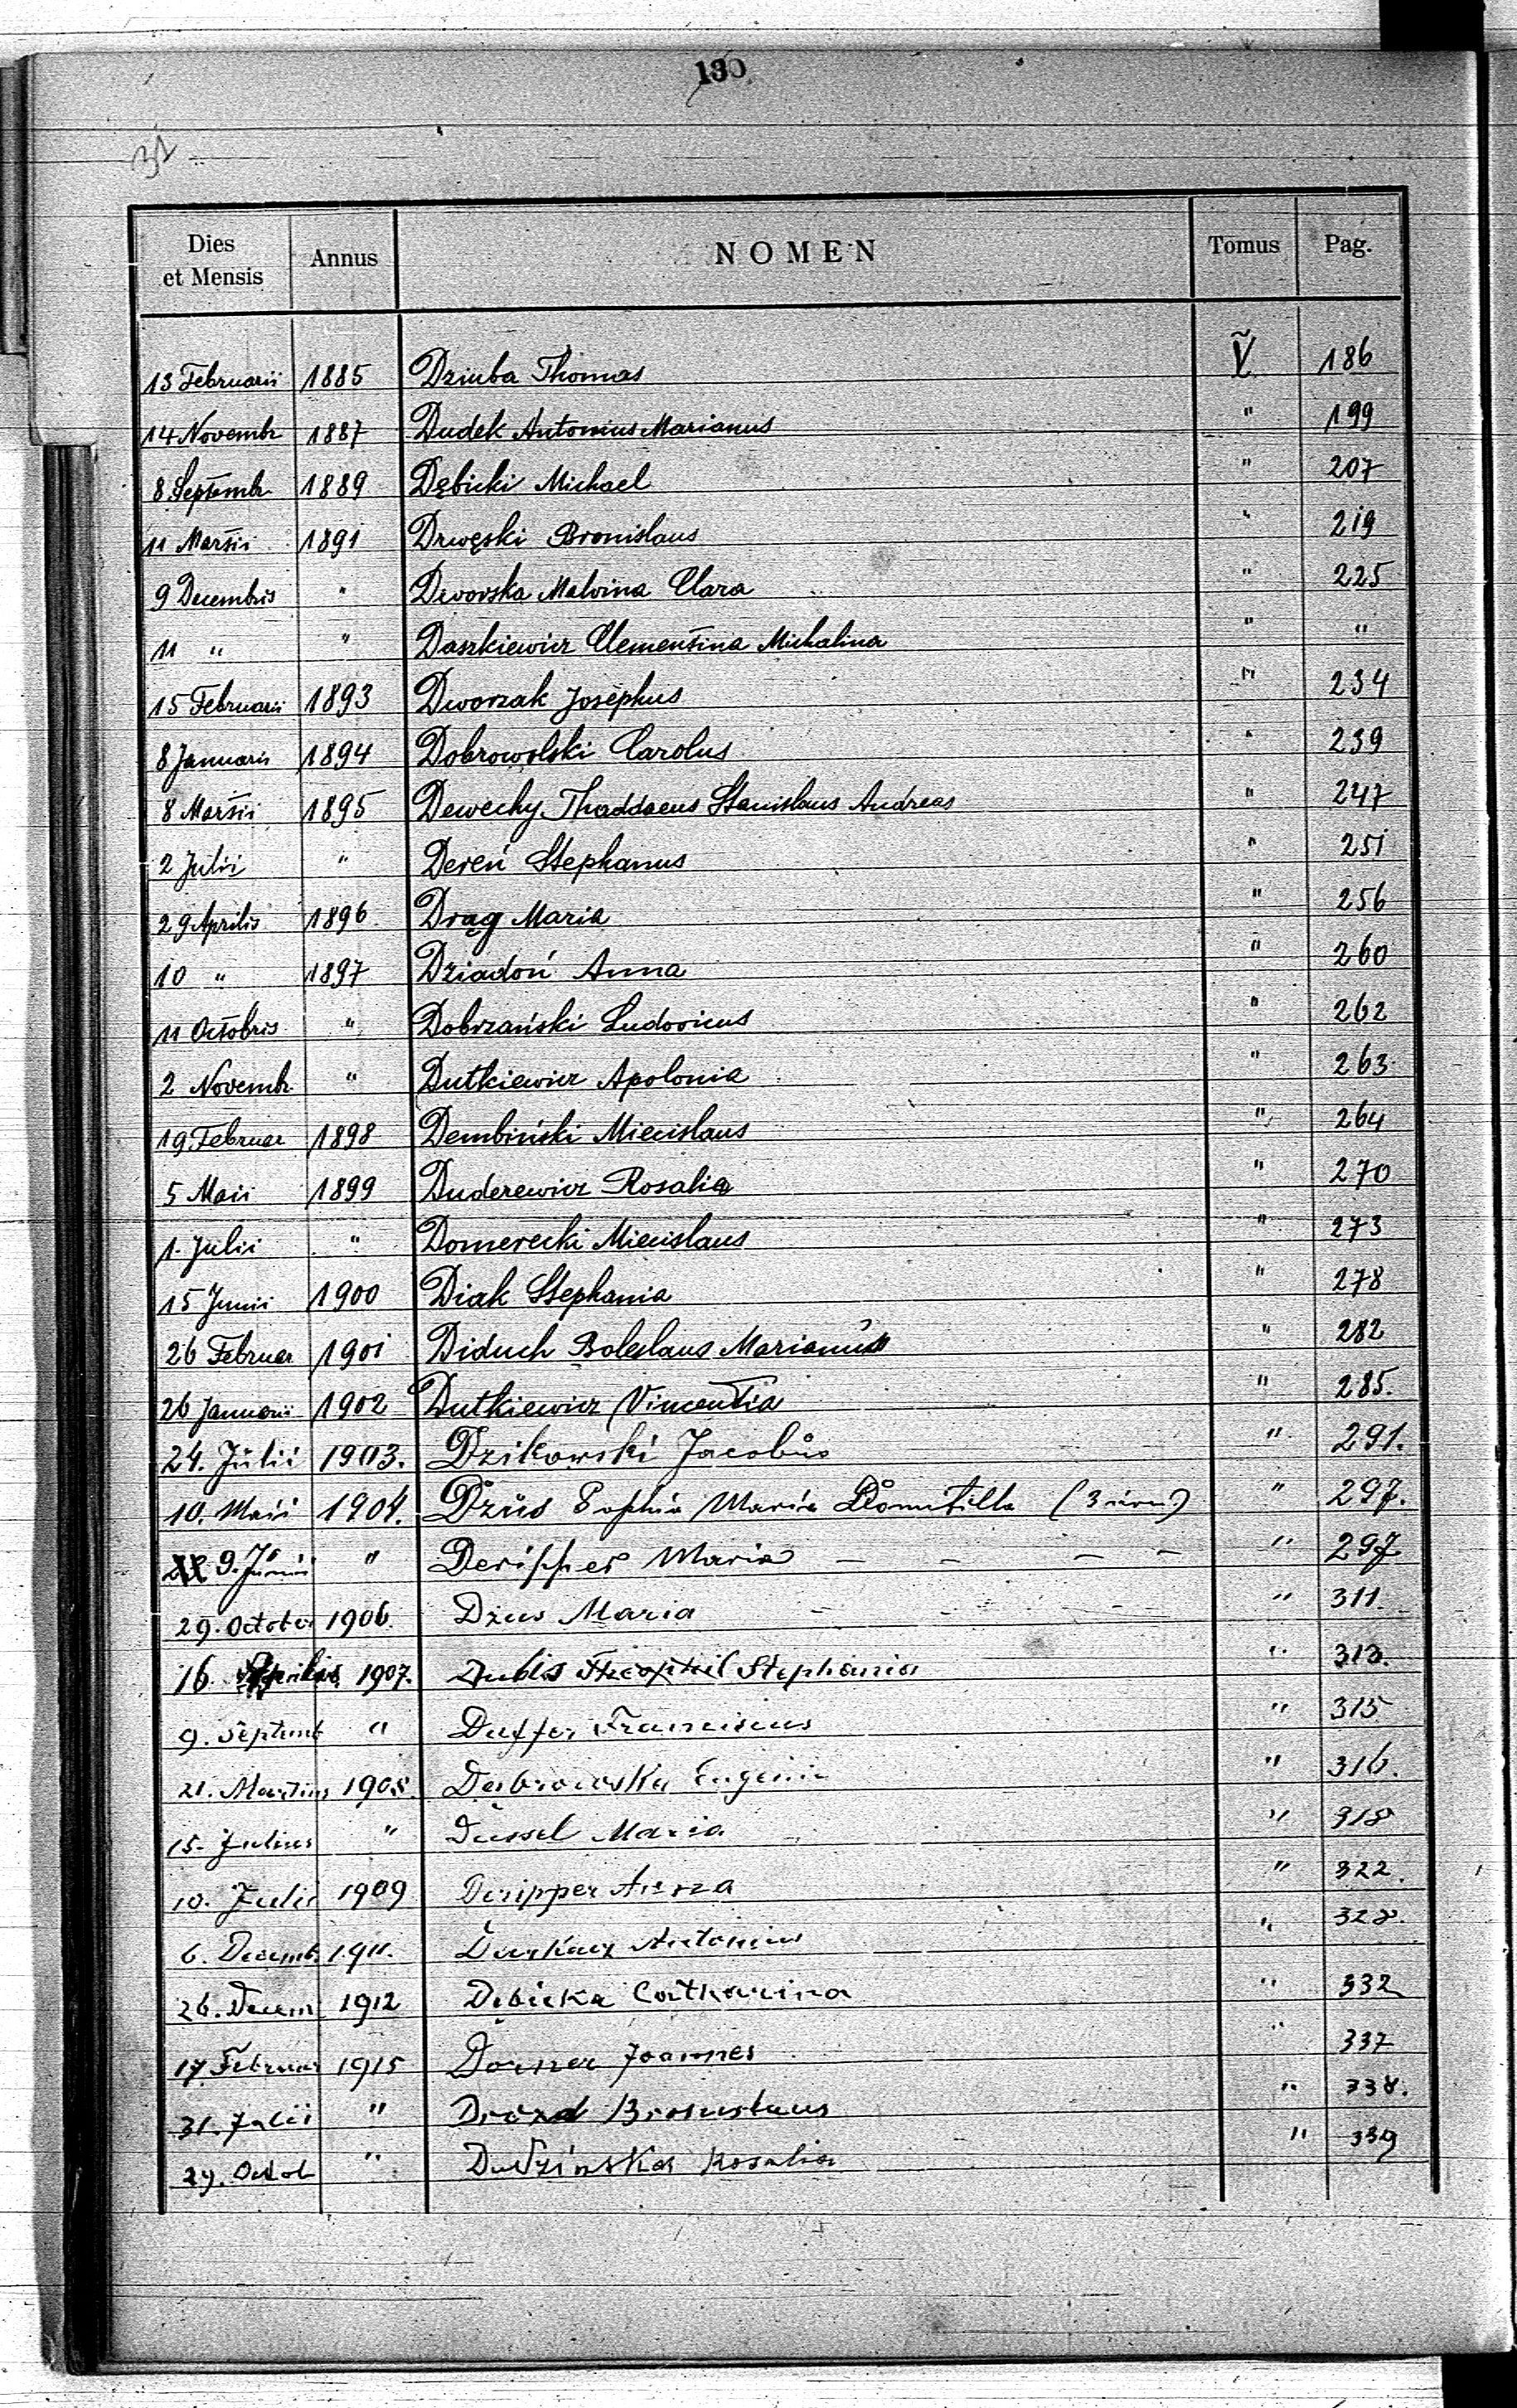 130
32
Dies et Mensis Annus NOMEN Tomus Pag.
13 Februarii 1885 Dziuba Thomas V 186
14 Novembr 1887 Dudek Antonius Marianus " 199
8 Septembr 1889 Dębicki Michael " 207
11 Martii 1891 Drwęski Bronislaus " 219
9 Decembris " Dworska Malvina Clara " 225
11 " " Daszkiewicz Clementina Michalina " "
15 Februarii 1893 Dworzak Josephus " 234
8 Januaris 1894 Dobrowolski Carolus " 239
8 Martii 1895 Dewechy Thaddaeus Stanislaus Andreas " 247
2 Julii " Dereń Stephanus " 251
29 Aprilis 1896 Drąg Maria " 256
10 " 1897 Dziadoń Anna " 260
11 Octobris " Dobrzański Ludovicus " 262
2 Novembr " Dutkiewicz Apolonia " 263
19 Februar 1898 Dembiński Miecislaus " 264
5 Maii 1899 Duderewicz Rosalia " 270
1. Julii " Domerecki Miecislaus " 273
15 Junii 1900 Diak Stephania " 278
26 Februar 1901 Diduch Boleslaus Marianus " 282
26 Januarii 1902 Dutkiewicz Vincentia " 285.
24. Jülii 1903. Dzikowski Jacobus " 291.
10. Maii 1904. Dżüs Sophia Maria Domitilla " 297.
9. Junii " Deripper Maria " 297
29. October 1906. Dżus Maria " 311
16. Aprilis 1907. Dublis Theophil Stephania " 313.
9. Septemb " Duffer Franciscus " 315
21. Martius 1908. Dąbrowska Eugenia " 316.
15. Julius " Dussel Maria " 318
10. Julii 1909 Deripper Anna " 322.
6. Decemb. 1911. Antonius " 328.
26. Decem 1912 Dębicka Catharina " 332
17. Februar 1915 Dorner Joannes " 337
31. Julii " Drozd Bronislaus " 338.
29. Octob " Dudzińska Rosalia " 339